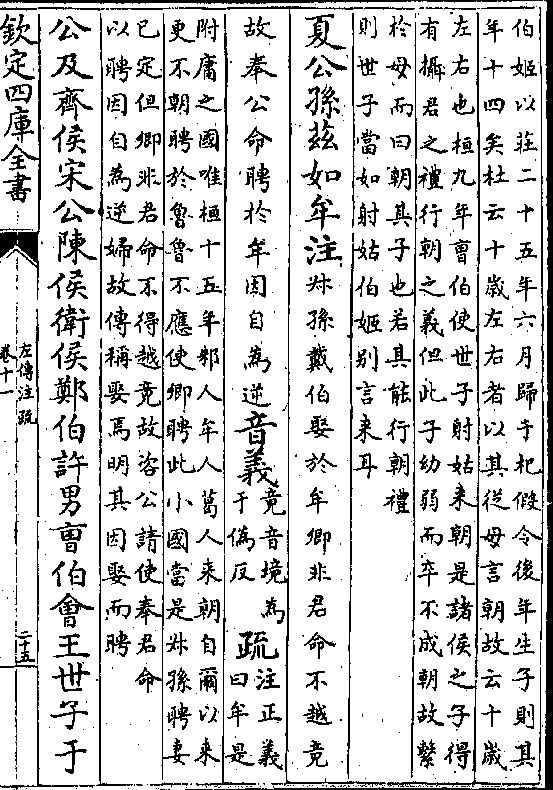 伯姬以莊二十五年六月歸于杞假令後年生子則其
年十四矣杜云十歲左右者以其從母言朝故云十歲
左右也桓九年曹伯使世子射姑来朝是諸侯之子得
有攝君之禮行朝之義但此子幼弱而卒不成朝故繫
於母而曰朝其子也若其能行朝禮
則世子當如射姑伯姬别言来耳
夏公孫兹如牟注叔孫戴伯娶於牟卿非君命不越竟
故奉公命聘於牟因自為逆音義竟音境為
于偽反疏注正義
曰牟是
附庸之國唯桓十五年邾人牟人葛人来朝自爾以来
更不朝聘於魯魯不應使卿聘此小國當是叔孫聘妻
已定但卿非君命不得越竟故咨公請使奉君命
以聘因自為逆婦故傳稱娶焉明其因娶而聘
公及齊侯宋公陳侯衛侯鄭伯許男曹伯會王世子于
欽定四庫全書
左傳注疏
卷十一
二十五